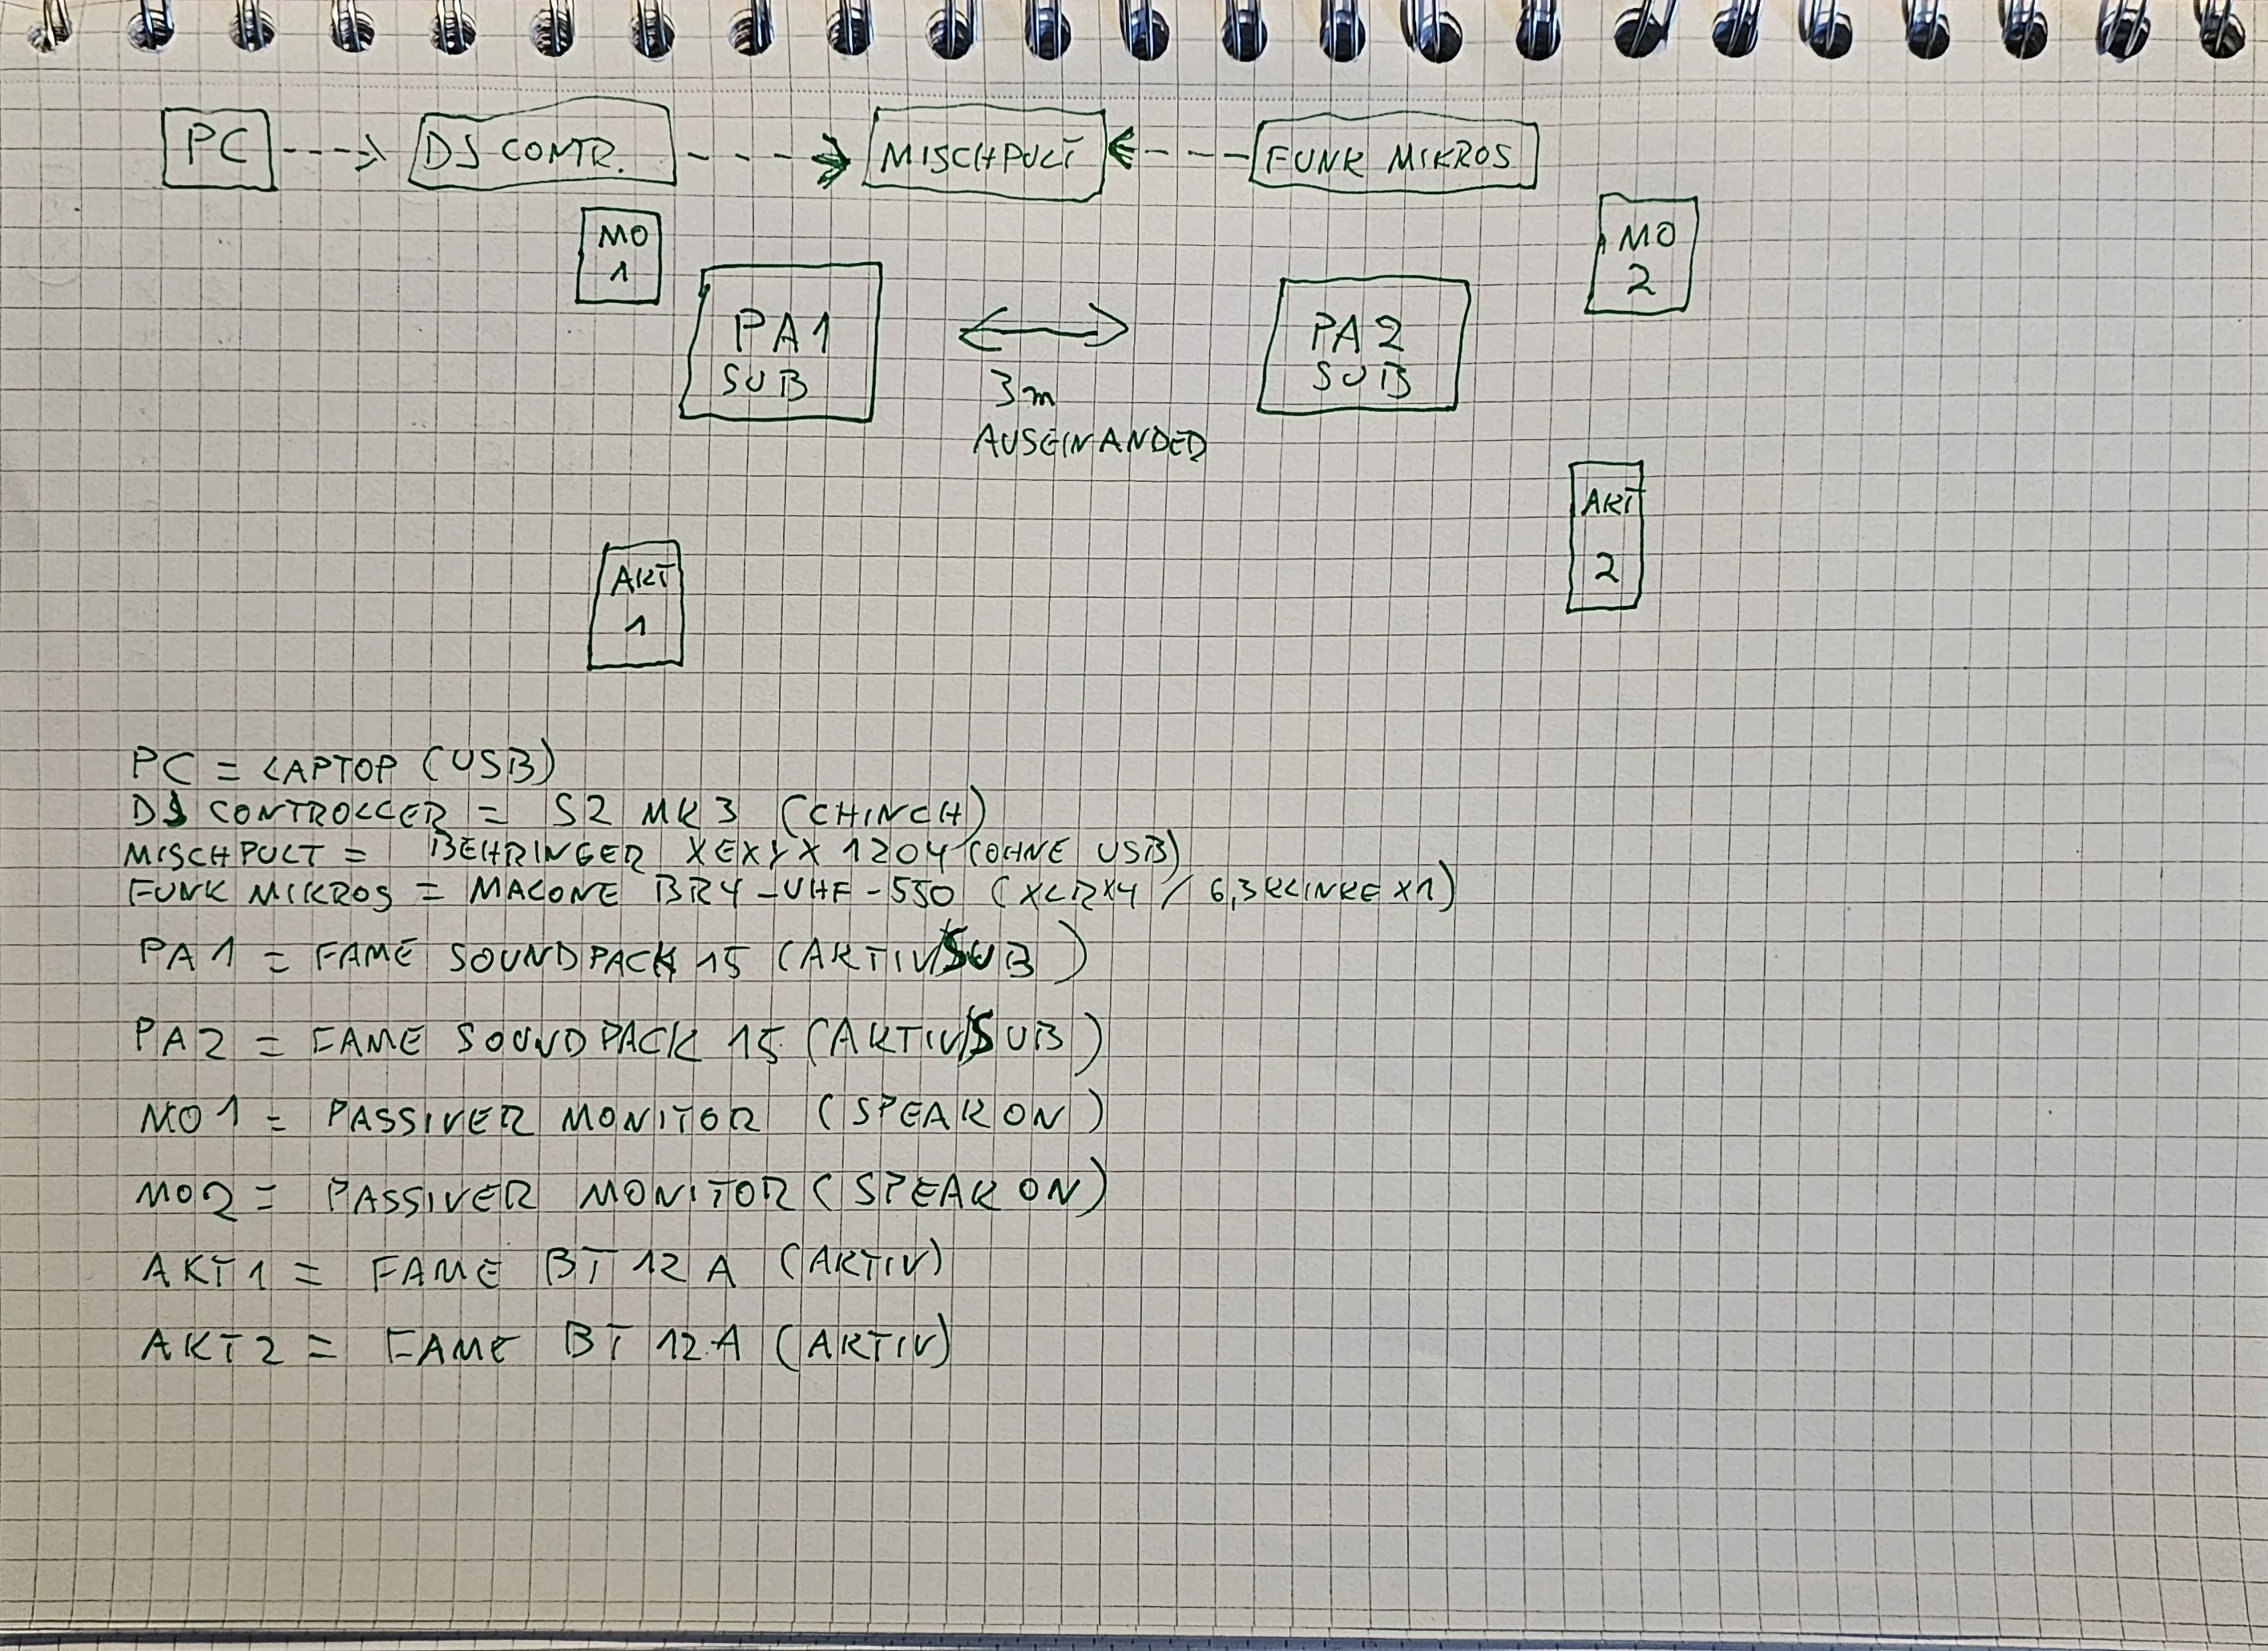 PC
DJ CONTR.
MISCHPULT
FUNK MIKROS
MO
1
MO
2
PA1
SUB
3m
AUSEINANDER
PA2
SUB
AKT
1
AKT
2
PC = LAPTOP (USB)
DJ CONTROLLER = S2 MK3 (CHINCH)
MISCHPULT = BEHRINGER XEXYX 1204 (OHNE USB)
FUNK MIKROS = MALONE BR4-UHF-550 (XLRX4 / 6,3 KLINKE X1)
PA1 = FAME SOUNDPACK 15 (AKTIV/SUB)
PA2 = FAME SOUNDPACK 15 (AKTIV/SUB)
MO1 = PASSIVER MONITOR (SPEAKON)
MO2 = PASSIVER MONITOR (SPEAKON)
AKT1 = FAME BT 12 A (AKTIV)
AKT2 = FAME BT 12 A (AKTIV)